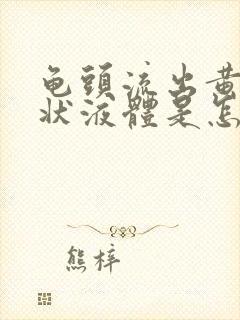 龟頭流出黄
状液體是怎
熊梓